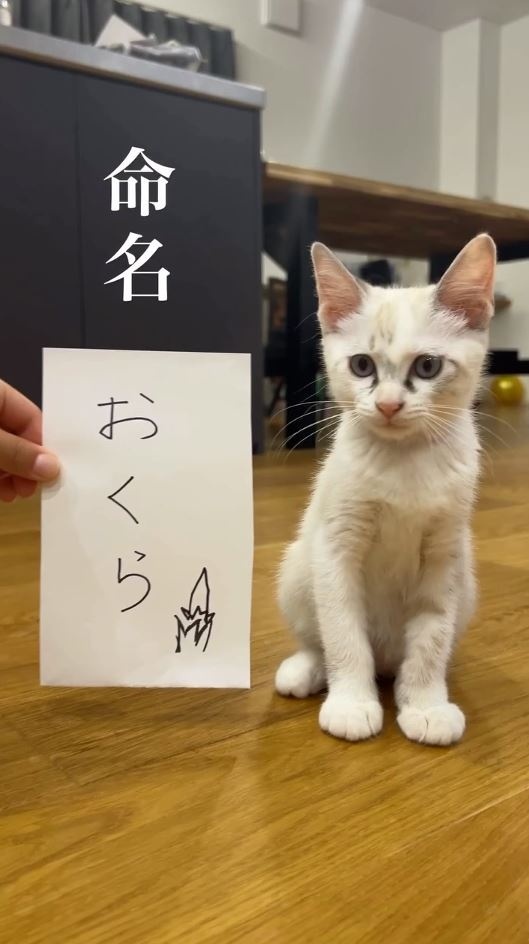 命名
おくら